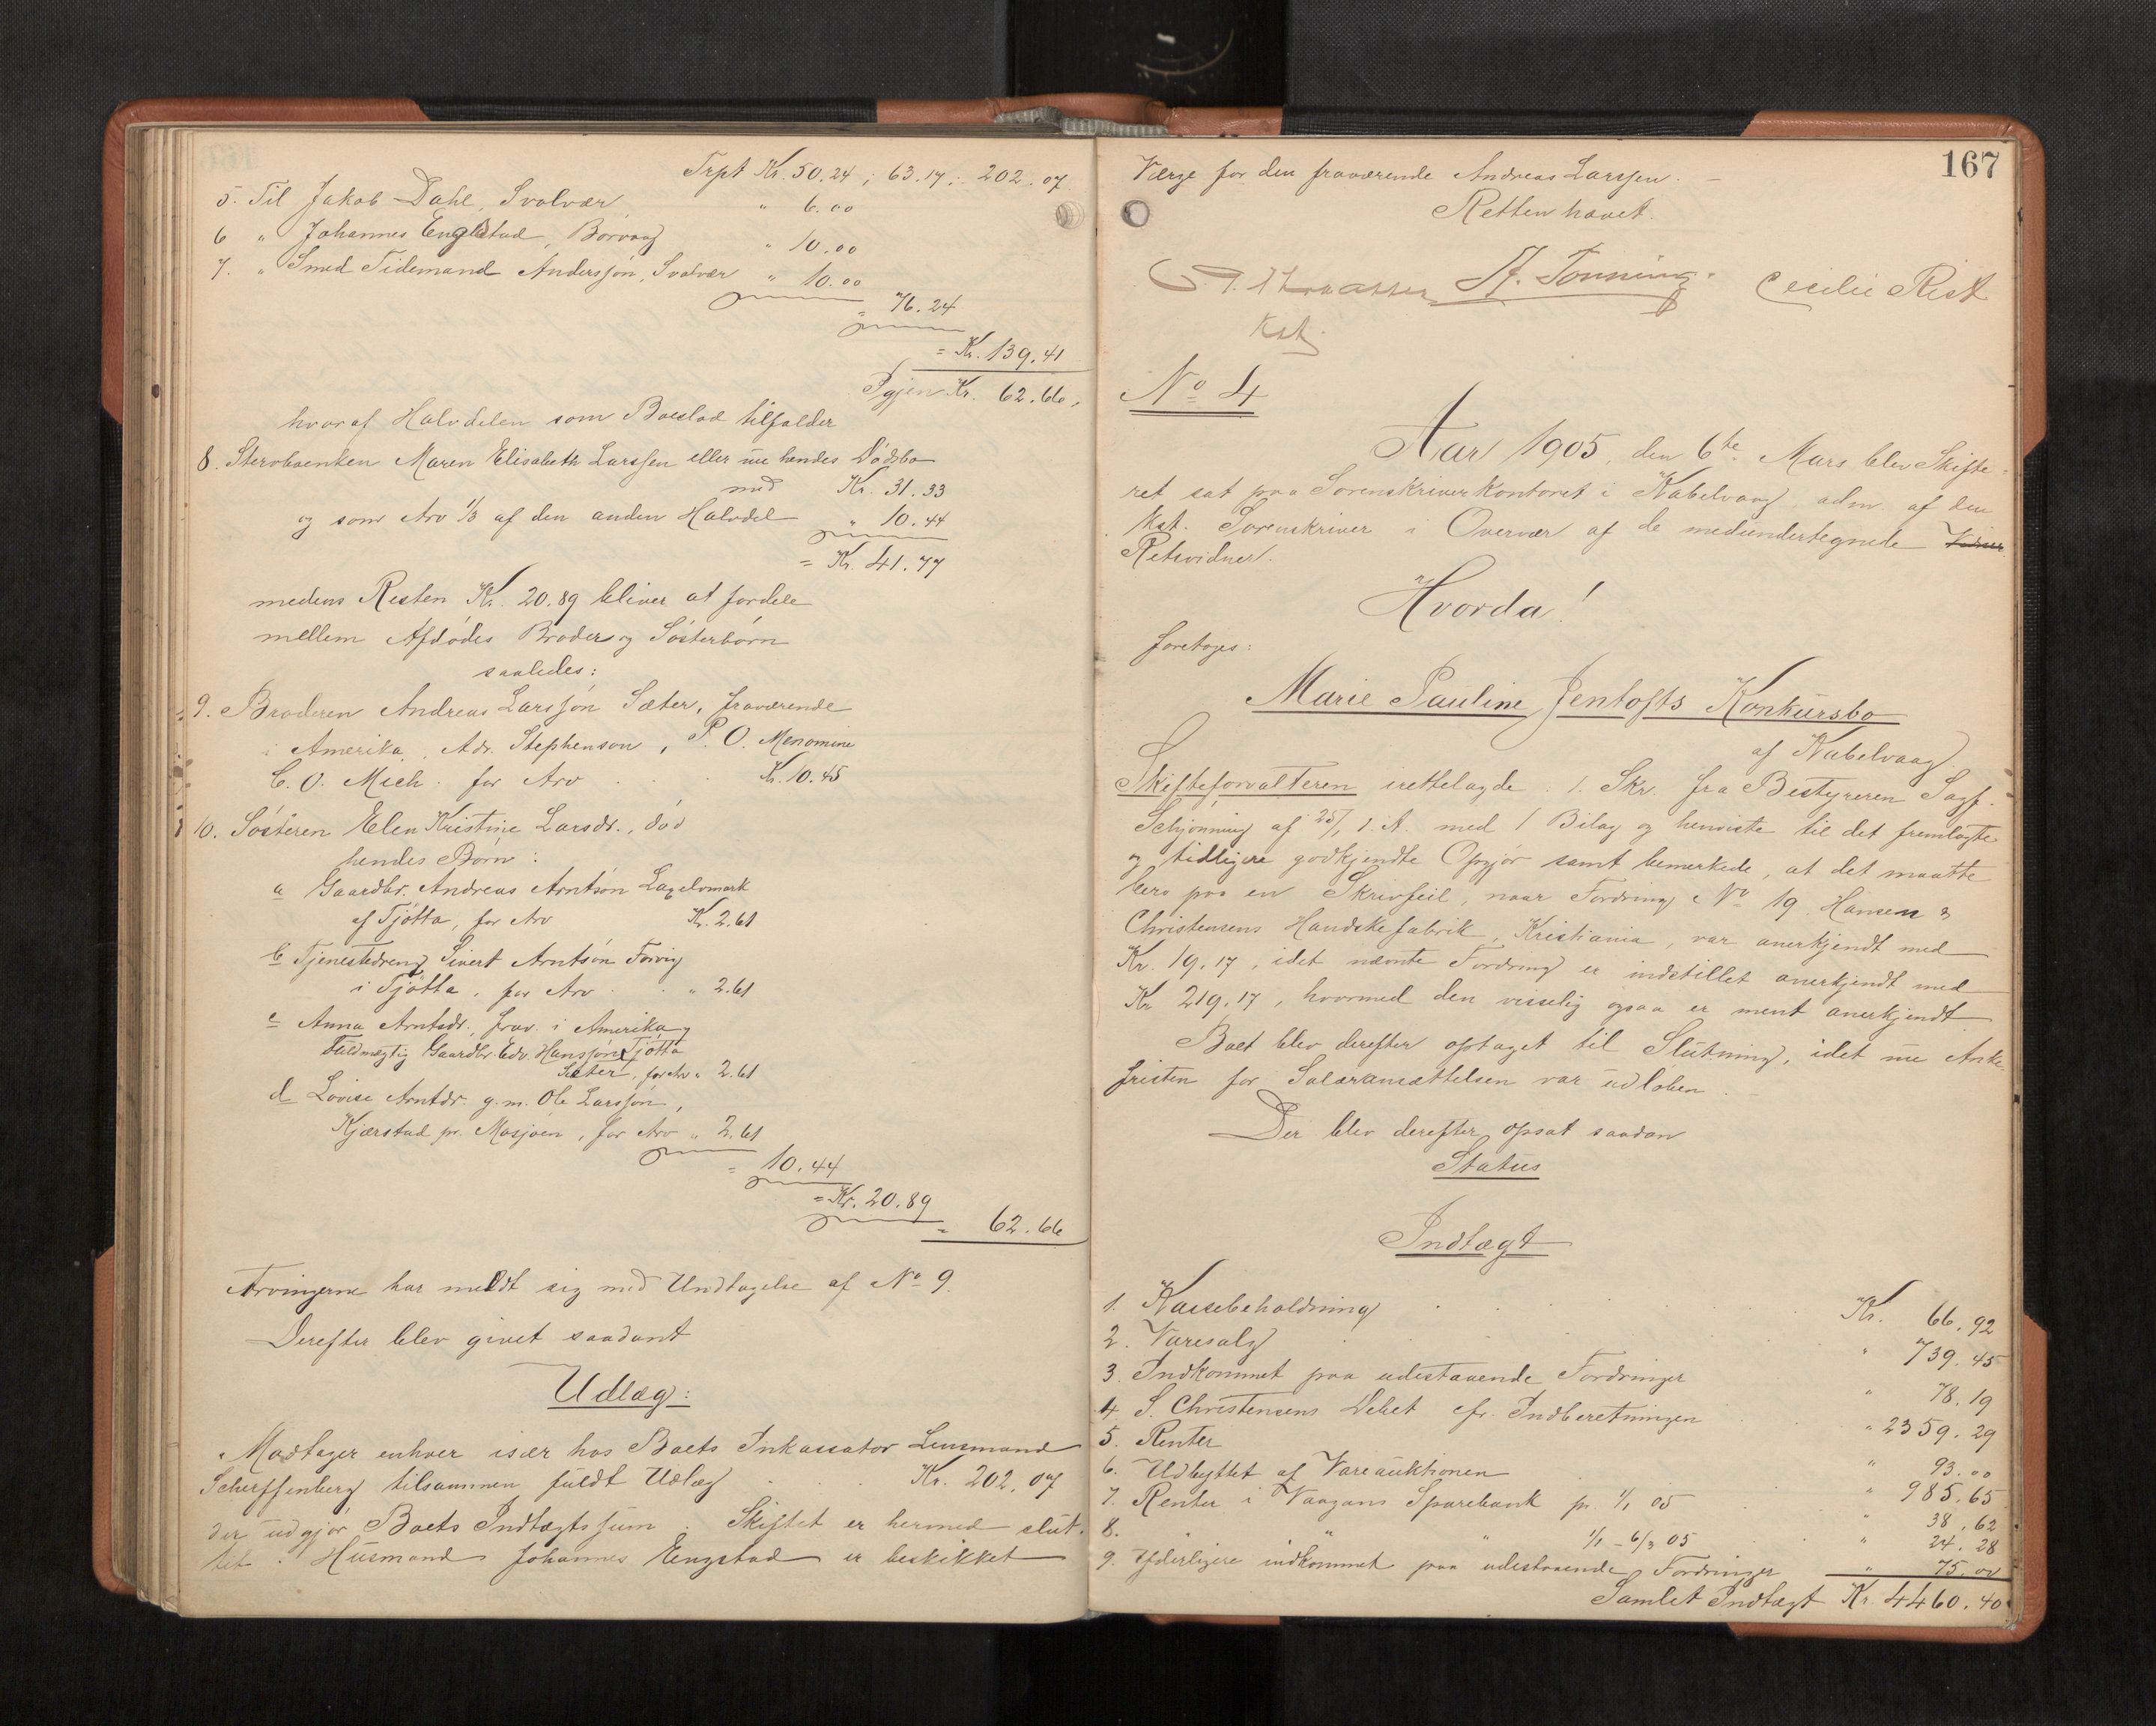 Trpt Kr. 50.24; 63.17; 202.07
5. Til Jakob Dahl, Svolvær " 6.00
6 " Johannes Engstad, Borvaag " 10.00
7. " Smed Tidemand Anderssøn, Svolvær " 10.00
= 76.24
= Kr. 139.41
Igjen Kr. 62.66,
hvoraf Halvdelen som Boeslod tilfalder
8. Stervboenken Maren Elisabeth Larssen eller nu hendes Dødsbo
med Kr. 31.33
og som Arv 1/3 af den anden Halvdel " 10.44
= Kr. 41.77
medens Resten Kr. 20.89 bliver at fordele
mellem Afdødes Broder og Søsterbørn
saaledes:
9. Broderen Andreas Larssøn Sæter, fraværende
i Amerika, Adr. Stephenson, P.O. Menomine
C.O. Mich. for Arv Kr. 10.45
10. Søsteren Elen Kristine Larsdr., død
hendes Børn:
a Gaardbr. Andreas Arntsøn
af Tjøtta, for Arv Kr. 2.61
b Tjenestedreng Sivert Arntsøn Forvig
i Tjøtta, for Arv " 2.61
c Anna Arntsdr., frav. i Amerika,
Fuldmægtig Gaardbr. Edv. Hanssøn Tjøtta
Sæter, for Arv " 2.61
d Lovise Arntdr. g.m. Ole Larssøn,
Kjærstad pr. Mosjøen, for Arv " 2.61
= 10.44
= Kr. 20.89
= 62.66
Arvingerne har meldt sig med Undtagelse af No 9.
Derefter blev givet saadant
Udlæg:
Modtager enhver især hos Boets Inkassator Lensmand
Scheffenberg tilsammen fuldt Udlæg Kr. 202.07
der udgjør Boets Indtægtssum. Skiftet er hermed slut-
tet. Husmand Johannes Engstad er beskikket
167
Værge for den fraværende Andreas Larssen. –
Retten hævet.
A. Tonning. Cecilie Rist
Kst.
No 4
Aar 1905, den 6te Mars blev Skifte-
ret sat paa Sorenskriverkontoret i Kabelvaag, adm. af den
kst. Sorenskriver i Overvær af de medundertegnede
Retsvidner.
Hvorda!
foretoges:
Marie Pauline Jentofts Konkursbo
af Kabelvaag.
Skifteforvalteren irettelagde: 1. Skr. fra Bestyreren Sagf.
Schjønning af 25/1 d. A. med 1 Bilag og henviste til det fremlagte
og tidligere godkjendte Opgjør samt bemerkede, at det maatte
bero paa en Skrivfeil, naar Fordring No 19 Hansen &
Christensens Handskefabrik, Kristiania, var anerkjendt med
Kr. 19.17, idet nævnte Fordring er indstillet anerkjendt med
Kr. 219.17, hvormed den visselig ogsaa er ment anerkjendt
Boet blev derefter optaget til Slutning, idet nu Anke-
fristen for Salæransættelsen var udløben.
Der blev derefter opsat saadan
Status
Indtægt
1. Kassebeholdning Kr. 66.92
2. Varesalg " 739.45
3. Indkommet paa udestaaende Fordringer " 78.19
4. S. Christensens Debet cfr. Indberetningen " 2359.29
5. Renter " 93.00
6. Udbyttet af Vareauktionen " 985.65
7. Renter i Vaagans Sparebank pr. 1/1 05 " 38.62
8. " " " 1/1 – 6/3 05 " 24.28
9. Yderligere indkommet paa udestaaende Fordringer " 75.00
Samlet Indtægt Kr. 4460.40